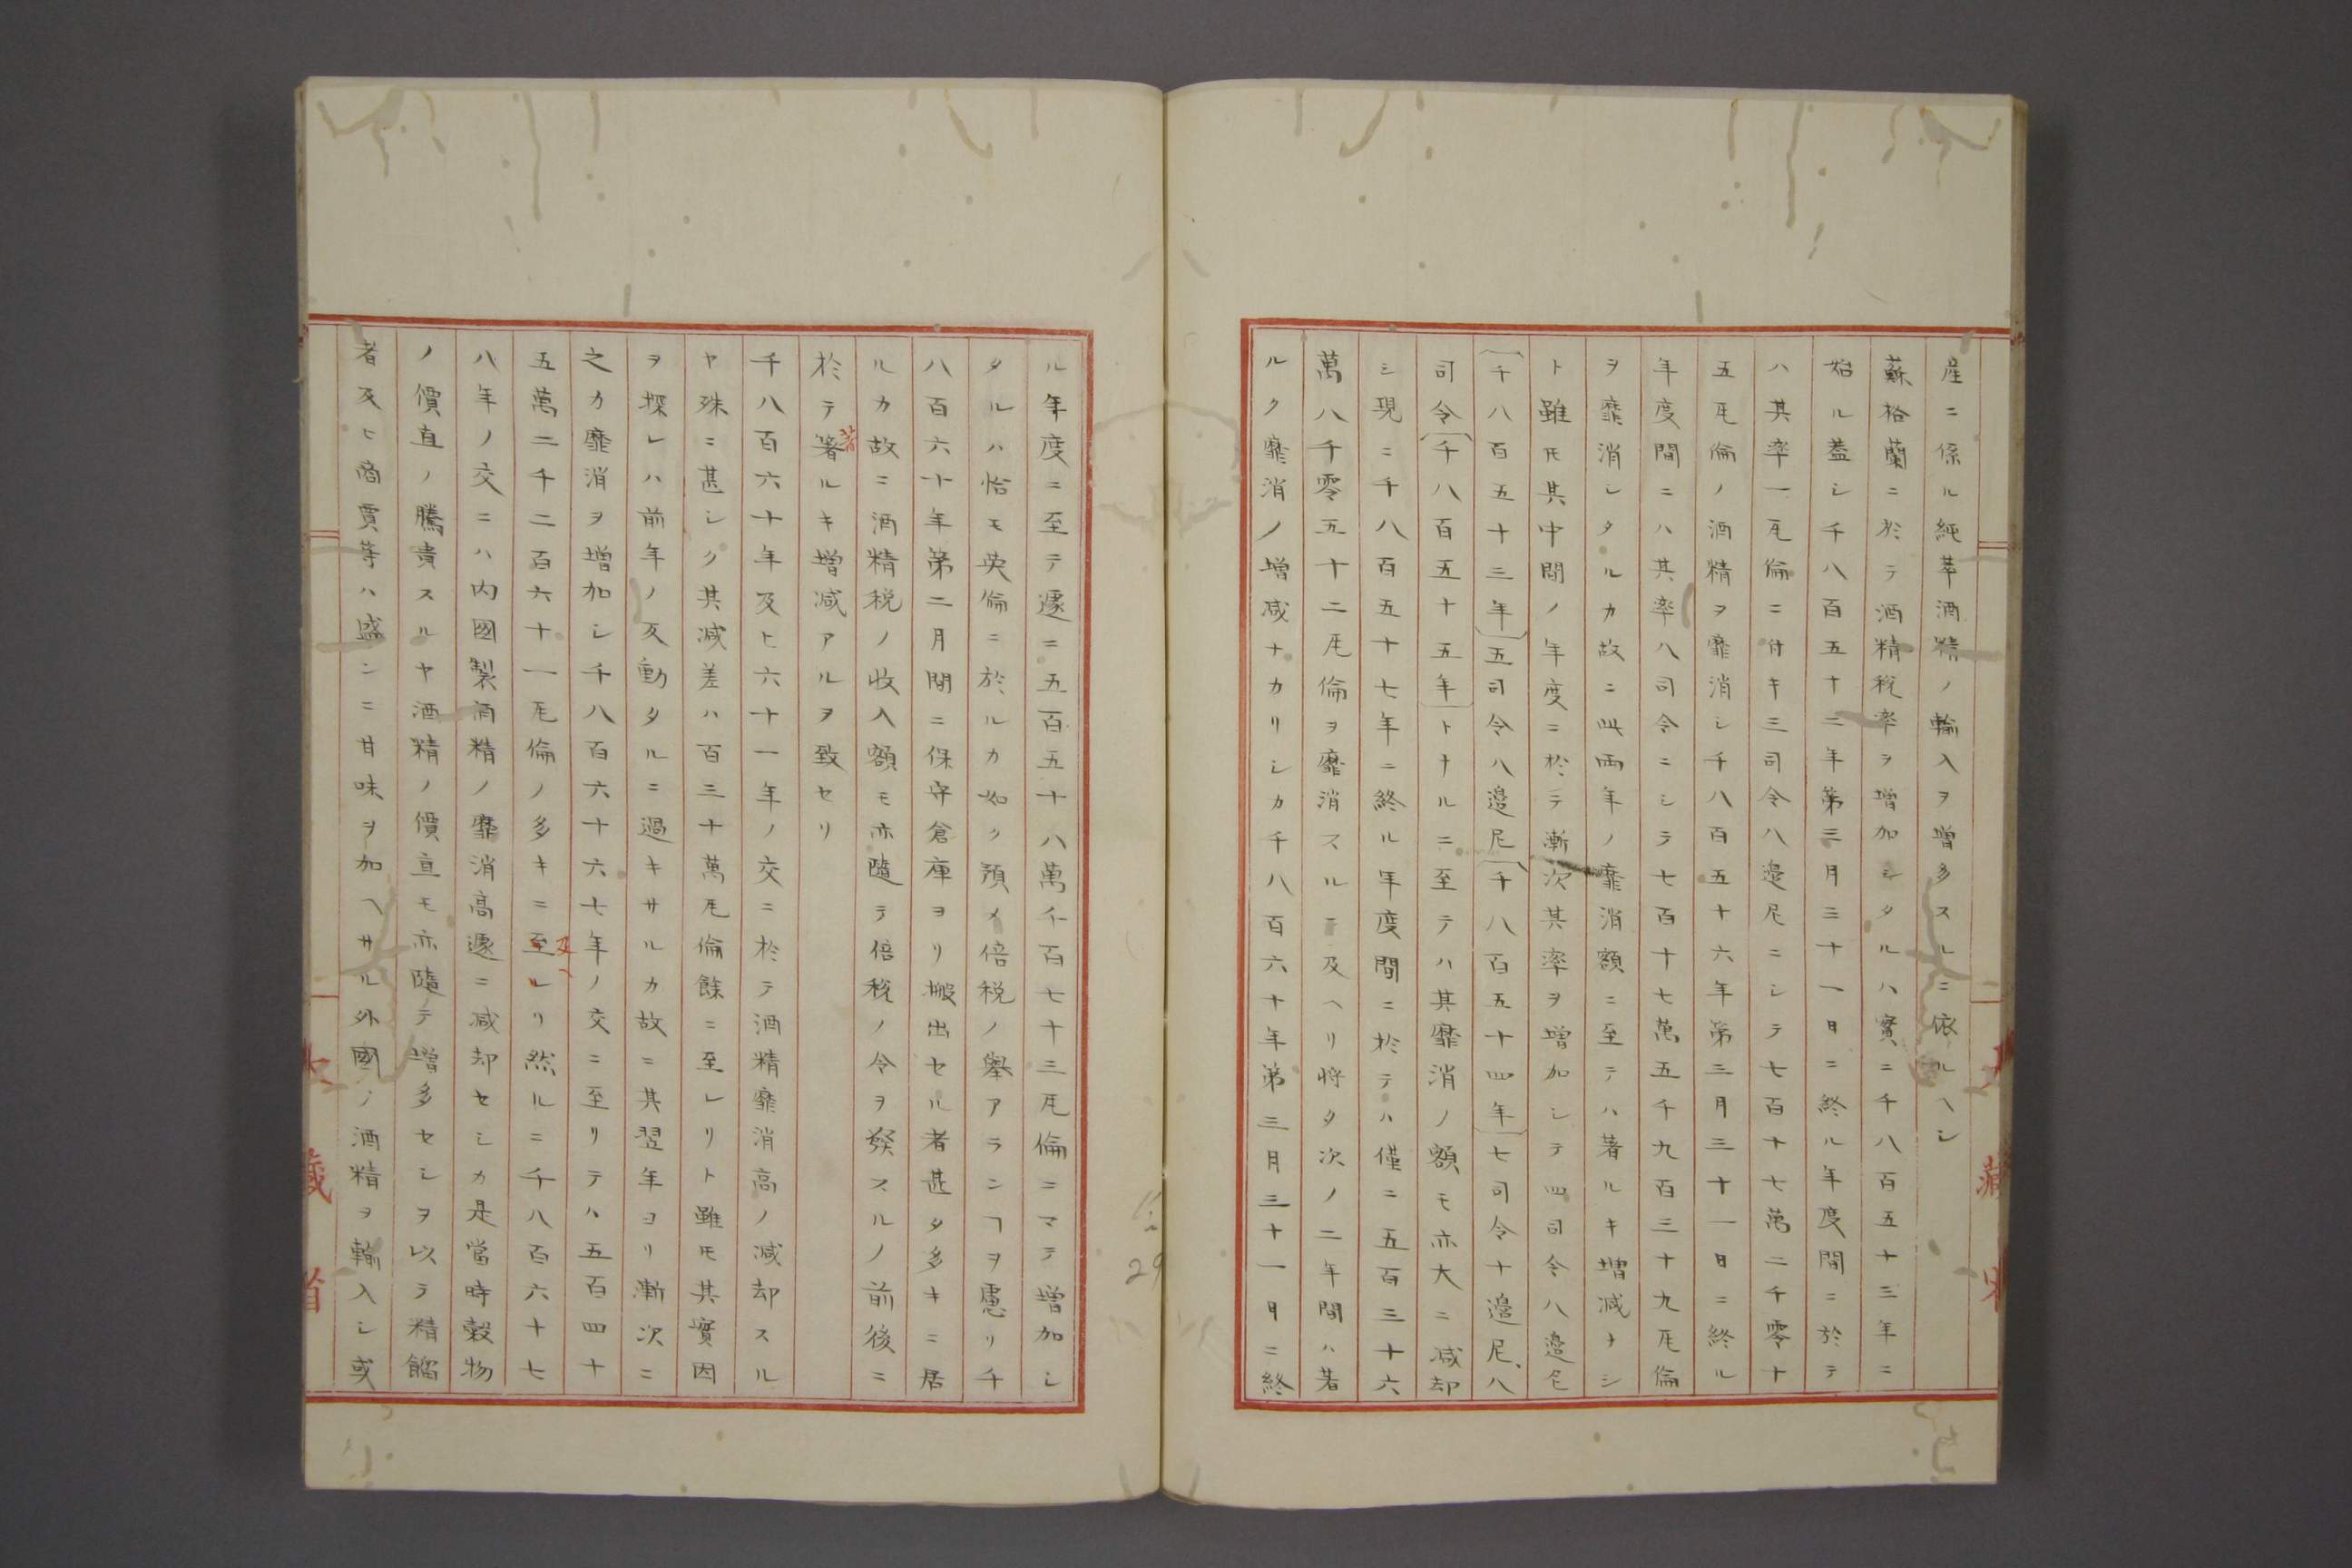 産ニ係ル純萃酒精ノ輸入ヲ増多スルニ依ルヘシ
蘇格蘭ニ於テ酒精税率ヲ増加シタルハ實ニ千八百五十三年ニ
始ル蓋シ千八百五十二年第三月三十一日ニ終ル年度間ニ於テ
ハ其率一瓦倫ニ付キ三司令八邉尼ニシテ七百十七萬二千零十
五瓦倫ノ酒精ヲ靡消シ千八百五十六年第三月三十一日ニ終ル
年度間ニハ其率八司令ニシテ七百十七萬五千九百三十九瓦倫
ヲ靡消シタルカ故ニ此両年ノ靡消額ニ至テハ著ルキ増减ナシ
ト雖モ其中間ノ年度ニ於テ漸次其率ヲ増加シテ四司令八邉尼
(千八百五十三年)五司令八邉尼(千八百五十四年)七司令十邉尼、八
司令(千八百五十五年)トナルニ至テハ其靡消ノ額モ亦大ニ减却
シ現ニ千八百五十七年ニ終ル年度間ニ於テハ僅ニ五百三十六
萬八千零五十二瓦倫ヲ靡消スルニ及ヘリ將タ次ノ二年間ハ著
ルク靡消ノ増减ナカリシカ千八百六十年第三月三十一日ニ終
ル年度ニ至テ遽ニ五百五十八萬千百七十三瓦倫ニマテ増加シ
タルハ恰モ英倫ニ於ルカ如ク預メ倍税ノ擧アランヿヲ慮リ千
八百六十年第二月間ニ保守倉庫ヨリ搬出セル者甚タ多キニ居
ルカ故ニ酒精税ノ收入額モ亦隨テ倍税ノ令ヲ發スルノ前後ニ
於テ箸著ルキ増减アルヲ致セリ
千八百六十年及ヒ六十一年ノ交ニ於テ酒精靡消高ノ减却スル
ヤ殊ニ甚シク其减差ハ百三十萬瓦倫餘ニ至レリト雖モ其實因
ヲ探レハ前年ノ反動タルニ過キサルカ故ニ其翌年ヨリ漸次ニ
之カ靡消ヲ増加シ千八百六十六七年ノ交ニ至リテハ五百四十
五萬二千二百六十一瓦倫ノ多キニ至ル及ヘリ然ルニ千八百六十七
八年ノ交ニハ内國製酒精ノ靡消高遽ニ减却セシカ是當時穀物
ノ價直ノ騰貴スルヤ酒精ノ價直モ亦隨テ増多セシヲ以テ精餾
者及ヒ商賈等ハ盛ンニ甘味ヲ加ヘサル外國ノ酒精ヲ輸入シ或
29
大藏省